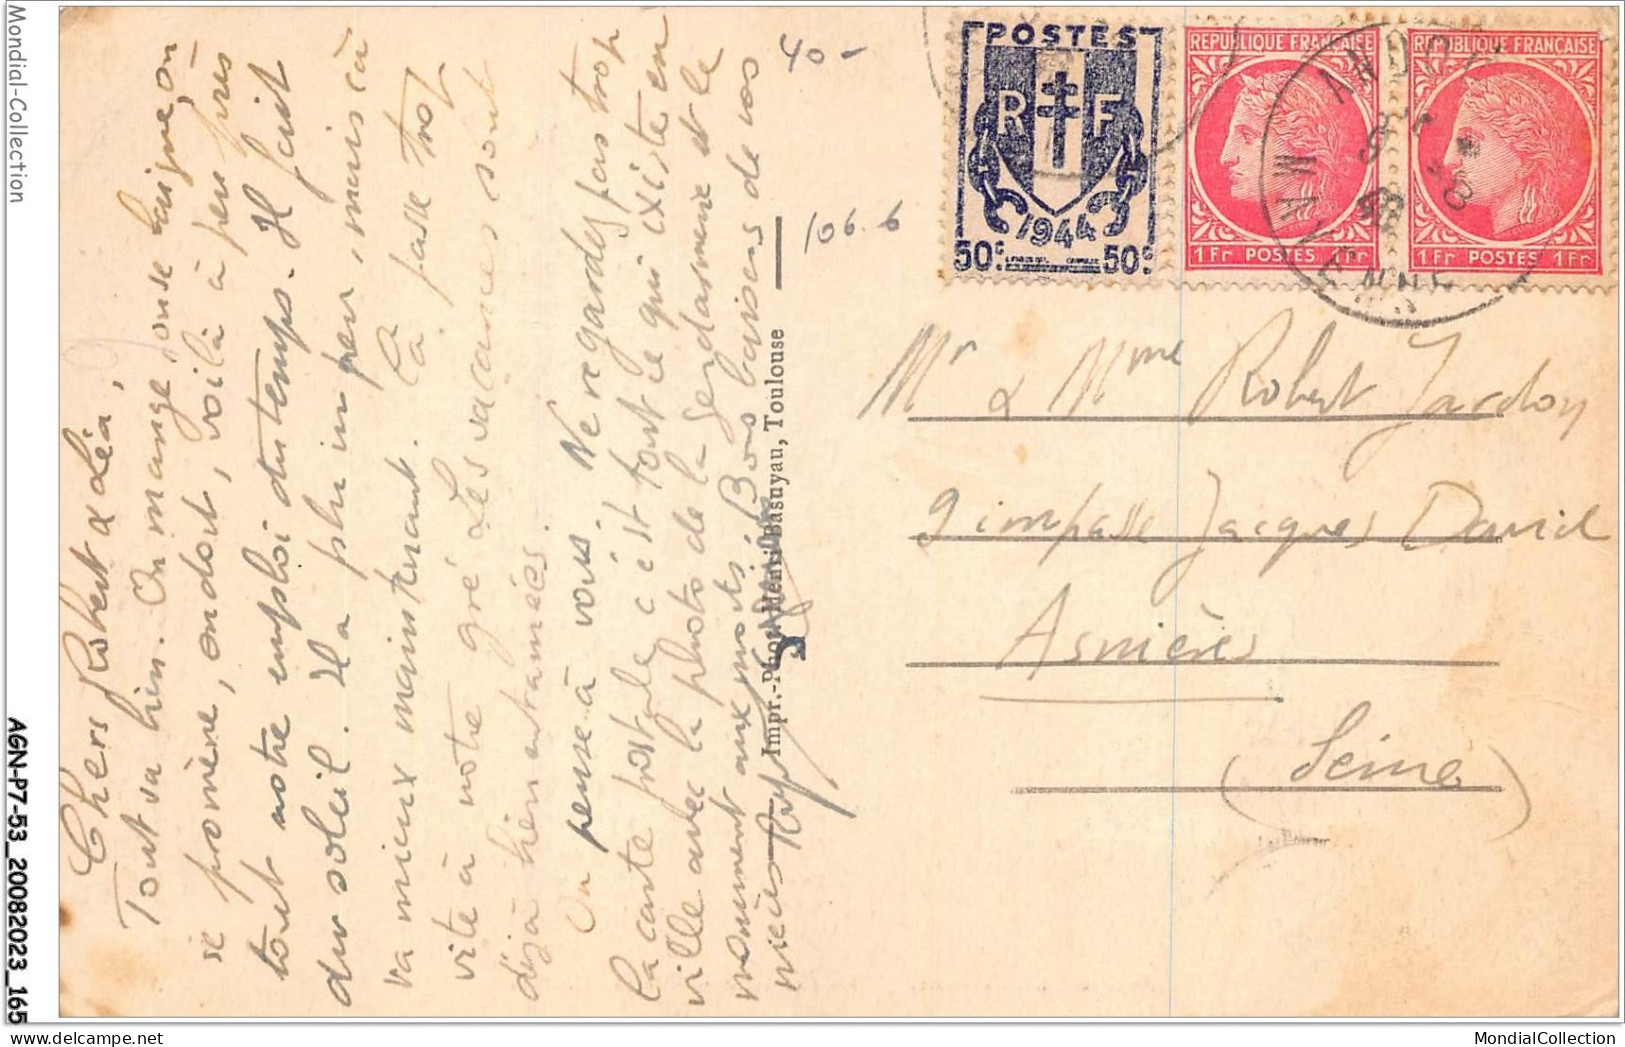 Mondial-Collection
AGN-P7-53_20082023_165
Chers Robert & Léa,
Tout va bien. On mange, joue baigne, on
se promène, on dort, voilà à peu près
tout notre emploi du temps. Il fait
du soleil. Il a plu un peu, mais ça
va mieux maintenant. Ça passe trop
vite à notre gré. Les vacances sont
déjà bien entamées.
On pense à vous. Ne regardez pas trop
la carte postale c'est tout ce qui existe en
ville avec la photo de la gendarmerie et le
monument aux morts. Bons baisers de vos
nièces
Impr.-Phot. Henri Basuyau, Toulouse
40-
106.6
POSTES
R F
1944
50c 50c
REPUBLIQUE FRANÇAISE
1 Fr POSTES 1 Fr
REPUBLIQUE FRANÇAISE
1 Fr POSTES 1 Fr
Mr & Mme Robert Jardoy
9 impasse Jacques David
Asnières
(Seine)
MondialCollection